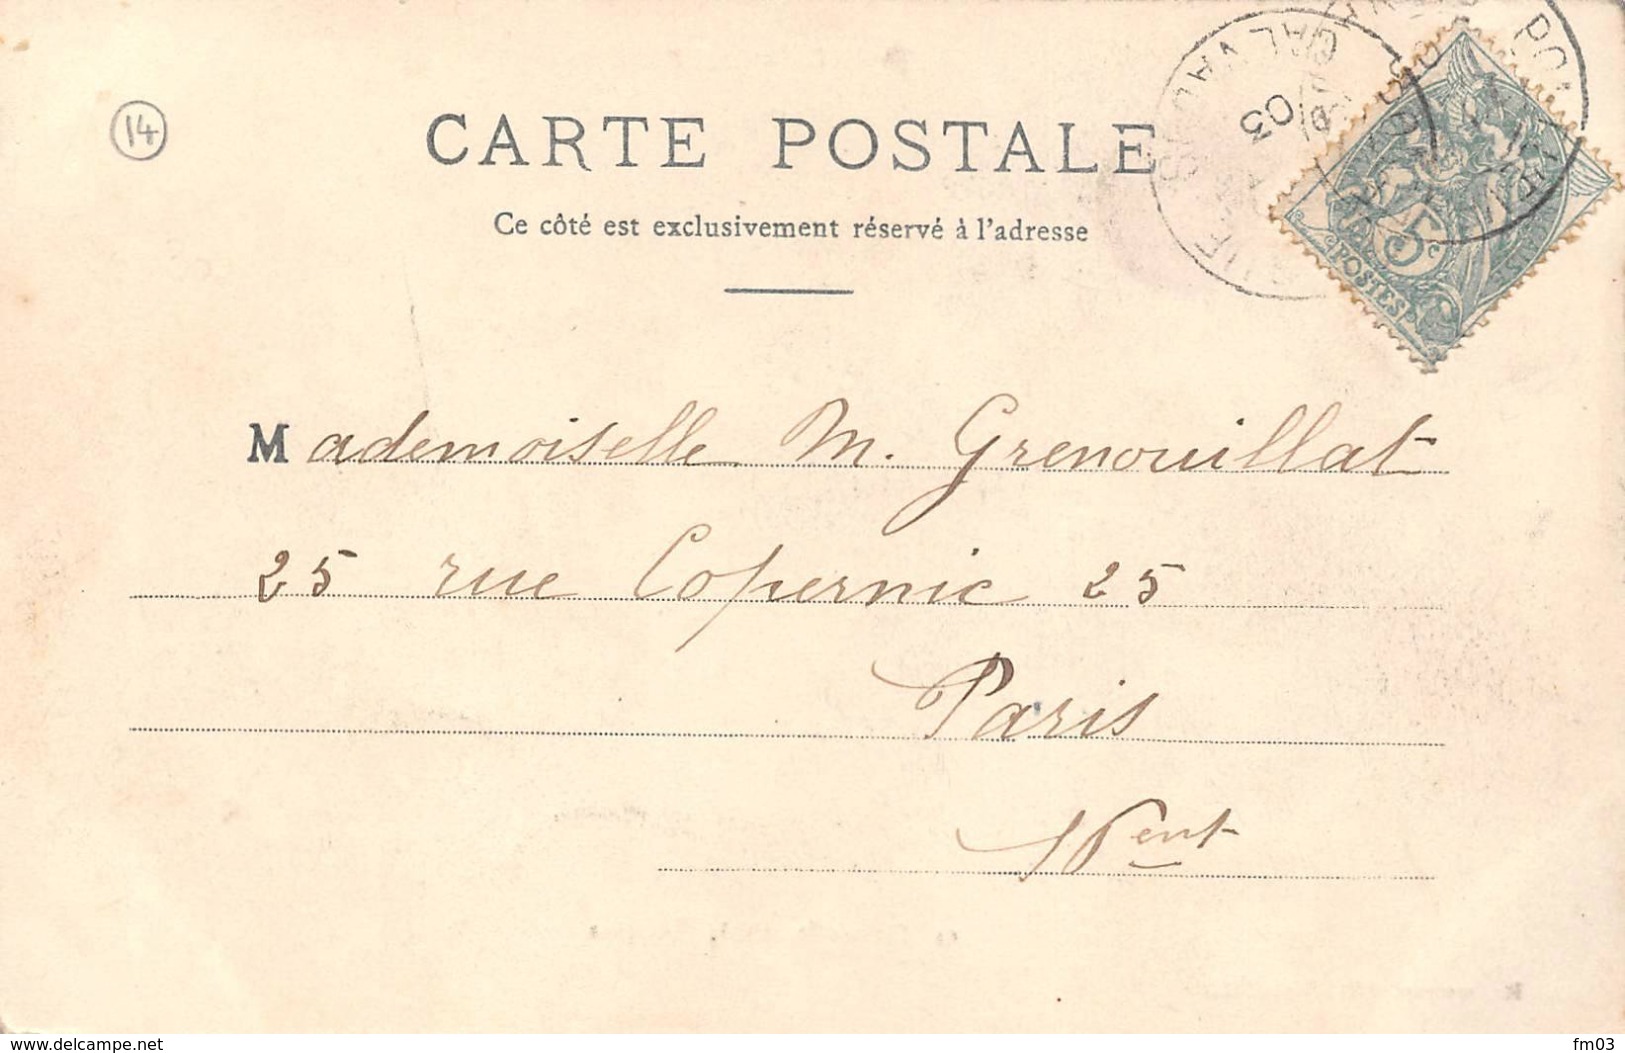 14
CARTE POSTALE
Ce côté est exclusivement réservé à l'adresse
CALVADOS
03
5c
POSTES
Mademoiselle M. Grenouillat
25 rue Copernic 25
Paris
www.delcampe.net
fm03